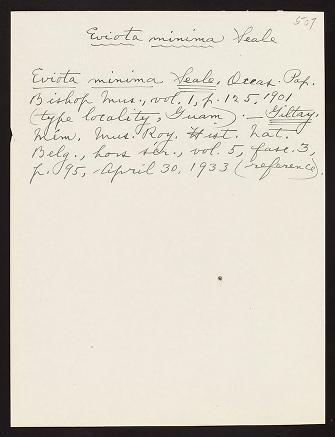 507
Eviota minima Seale
Eviota minima Seale, Occas. Pap.
Bishop Mus., vol. 1, p. 125, 1901
(type locality, Guam). — Giltay,
Mém. Mus. Roy. Hist. Nat.
Belg., hors sér., vol. 5, fasc. 3,
p. 95, April 30, 1933 (reference).